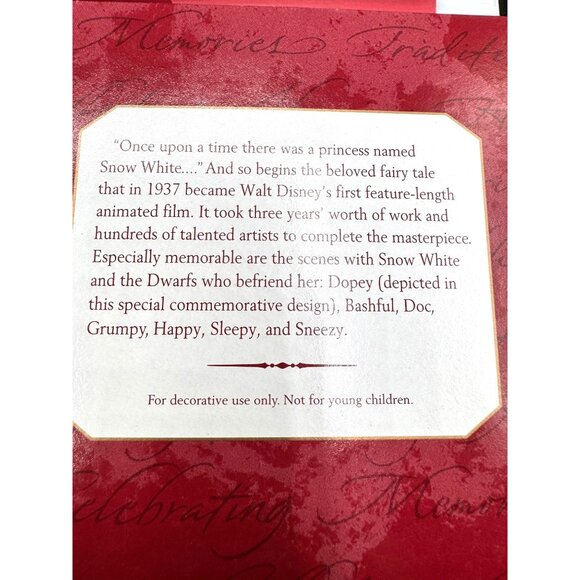 Memories Traditi
"Once upon a time there was a princess named
Snow White...." And so begins the beloved fairy tale
that in 1937 became Walt Disney's first feature-length
animated film. It took three years' worth of work and
hundreds of talented artists to complete the masterpiece.
Especially memorable are the scenes with Snow White
and the Dwarfs who befriend her: Dopey (depicted in
this special commemorative design), Bashful, Doc,
Grumpy, Happy, Sleepy, and Sneezy.
For decorative use only. Not for young children.
Celebrating Memories